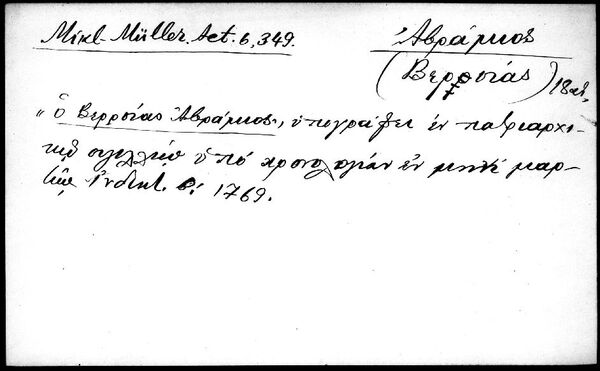 Mikl-Müller. Act. 6, 349.
Ἀβράμιος
(Βερροίας) 18 αἰ.
"ὁ Βερροίας Ἀβράμιος", ὑπογράφει ἐν πατριαρχι-
κῷ σιγιλλίῳ ὑπὸ χρονολογίαν ἐν μηνὶ μαρ-
τίῳ Ἰνδικτ. β: 1769.